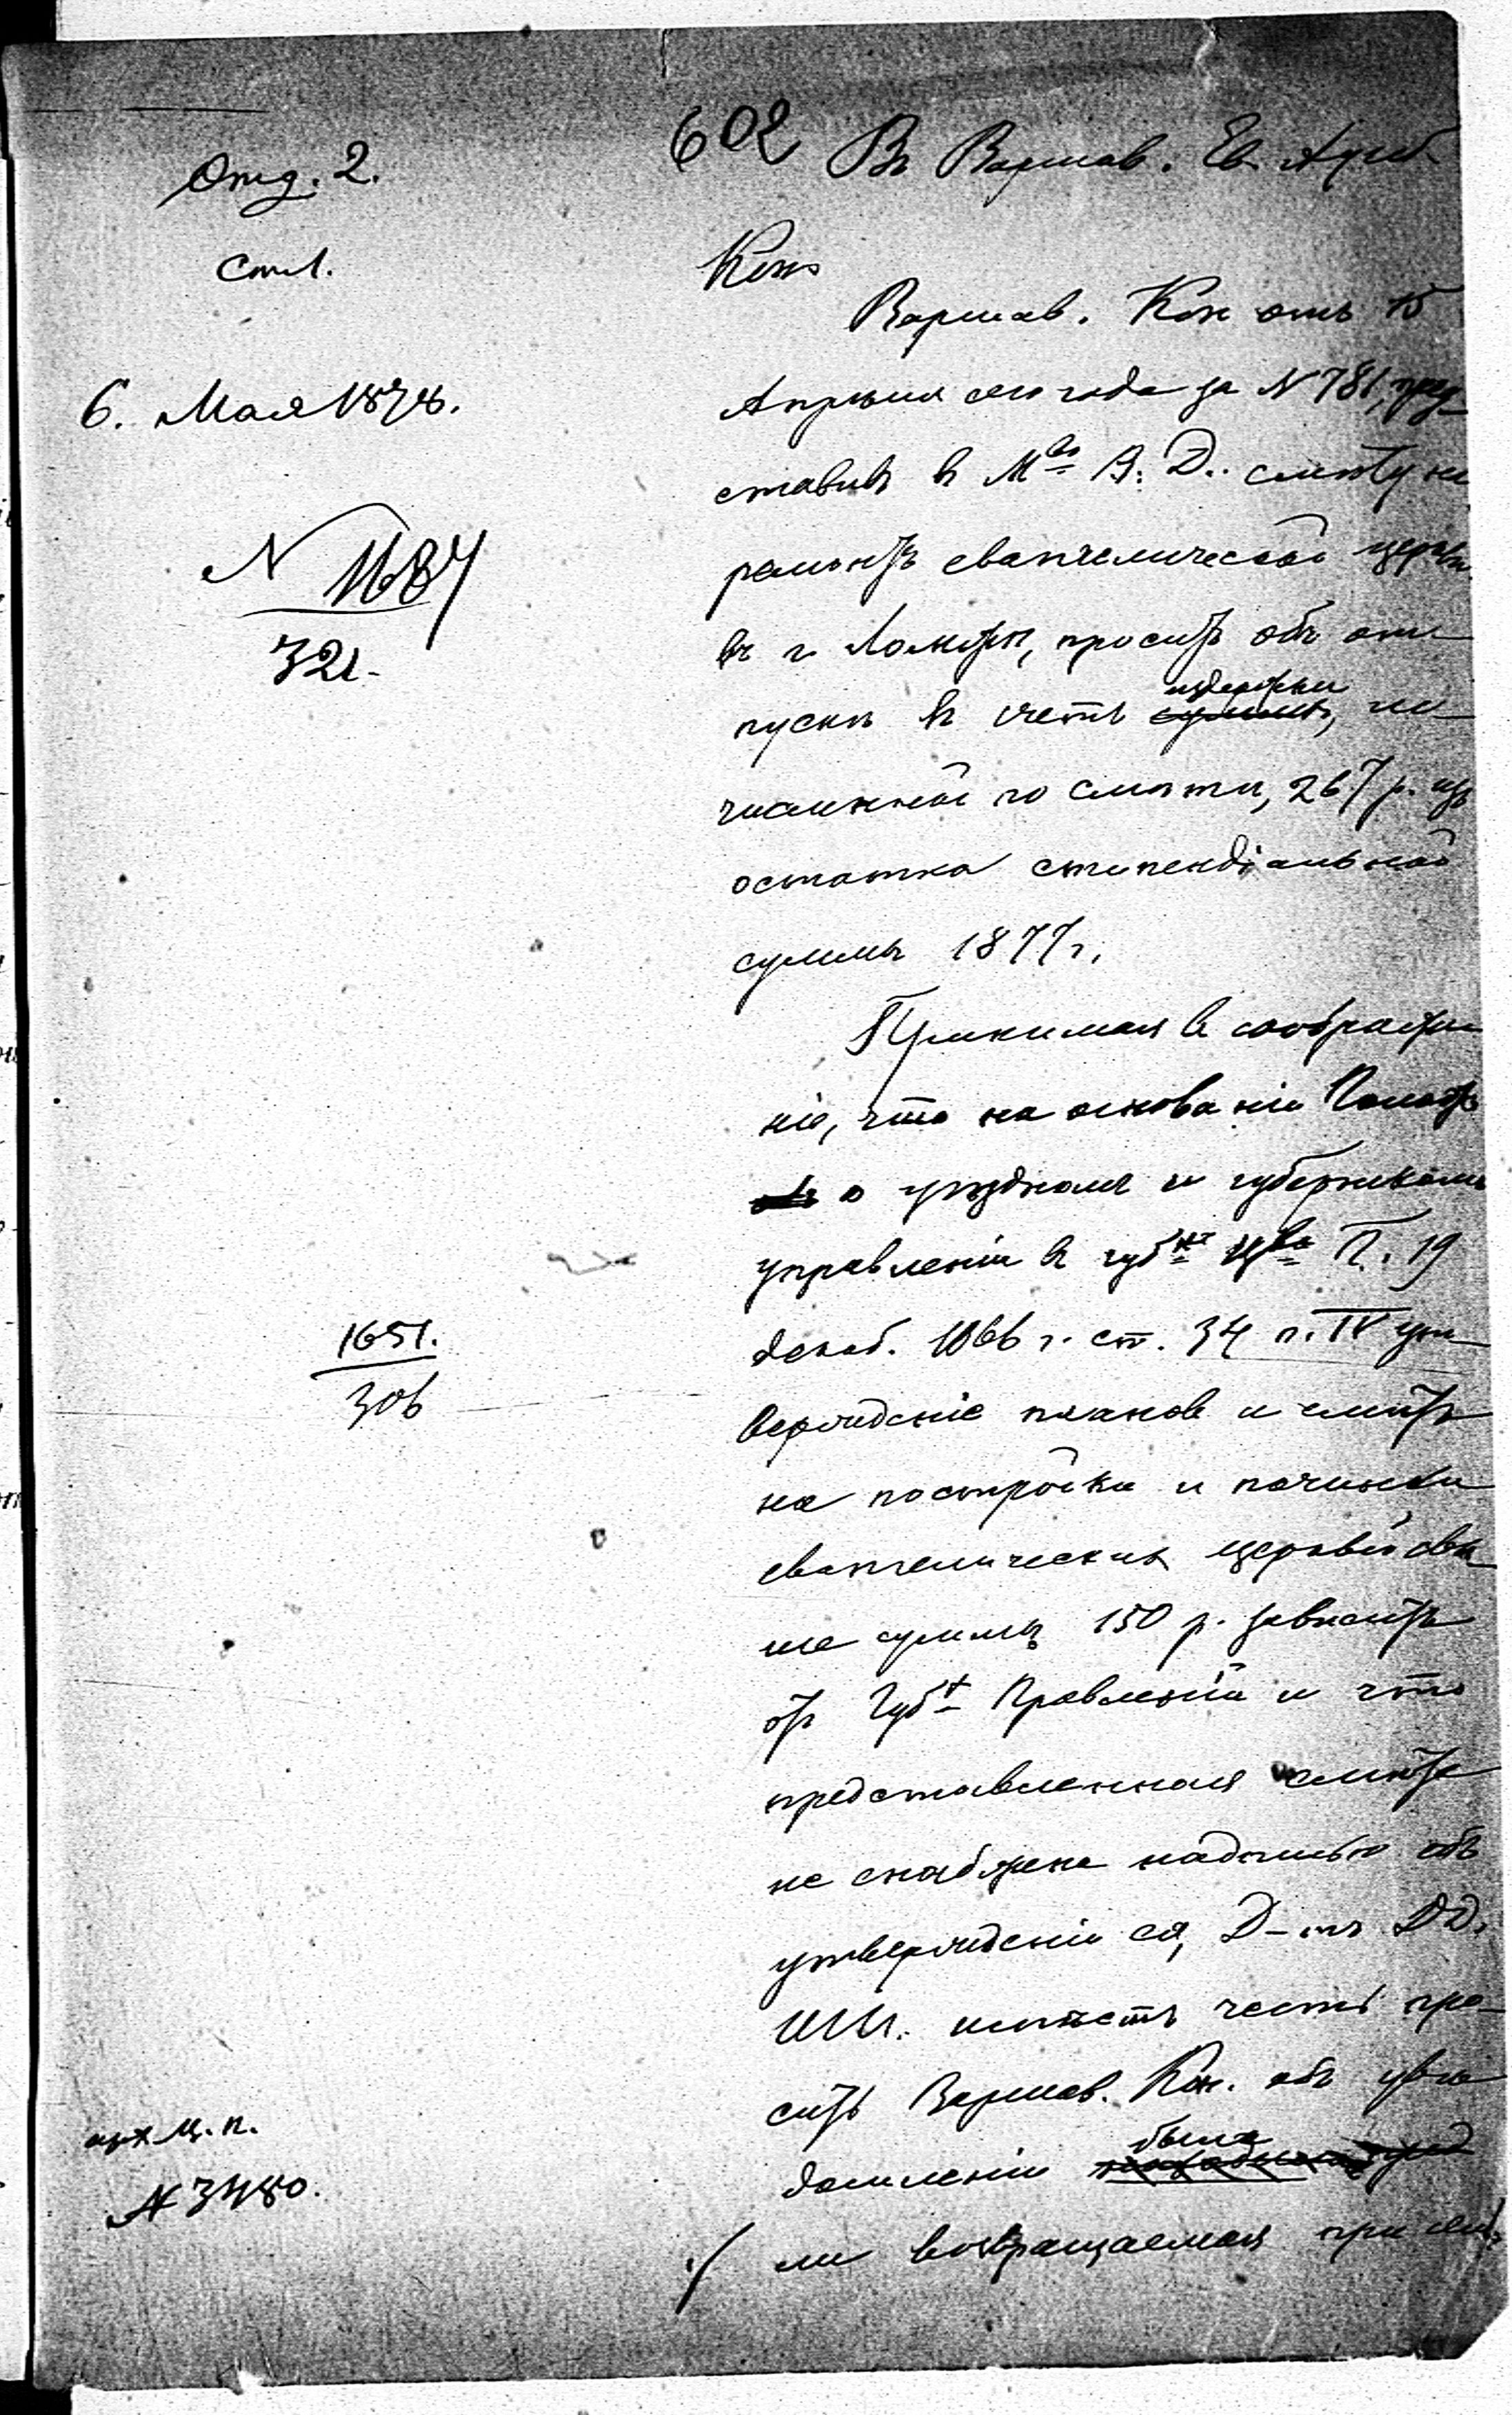 Отд. 2.
Стл.
6. Мая 1878.
N 1684
321.
1651.
306
арх. Ц. П.
№ 3480.
602 Въ Варшав. Ев. Ауг.
Кон.
Варшав. Кон. отъ 15
Апрѣля сего года за N 781, пред-
ставивъ въ Мво В. Д. смѣту на
ремонтъ евангелической церкви
въ г. Ломжѣ, проситъ объ от-
пускѣ въ счетъ суммы, издержки ис-
численной по смѣтѣ, 267 р. изъ
остатка стипендіальной
суммы 1877 г.
Принимая въ соображе-
ніе, что на основаніи Полож.
о уѣздномъ и губернскомъ
управленіи въ губхъ Цва П. 19
декаб. 1866 г. ст. 34 п. IV ут-
вержденіе плановъ и смѣтъ
на постройки и починки
евангелическихъ церквей свы-
ше суммы 150 р. зависитъ
отъ Губ. Правленій и что
представленная смѣта
не снабжена надписью объ
утвержденіи ея, Д-тъ ДД.
ИИ. имѣетъ честь про-
сить Варшав. Кон. объ увѣ-
домленіи была
ли возвращаемая при семъ